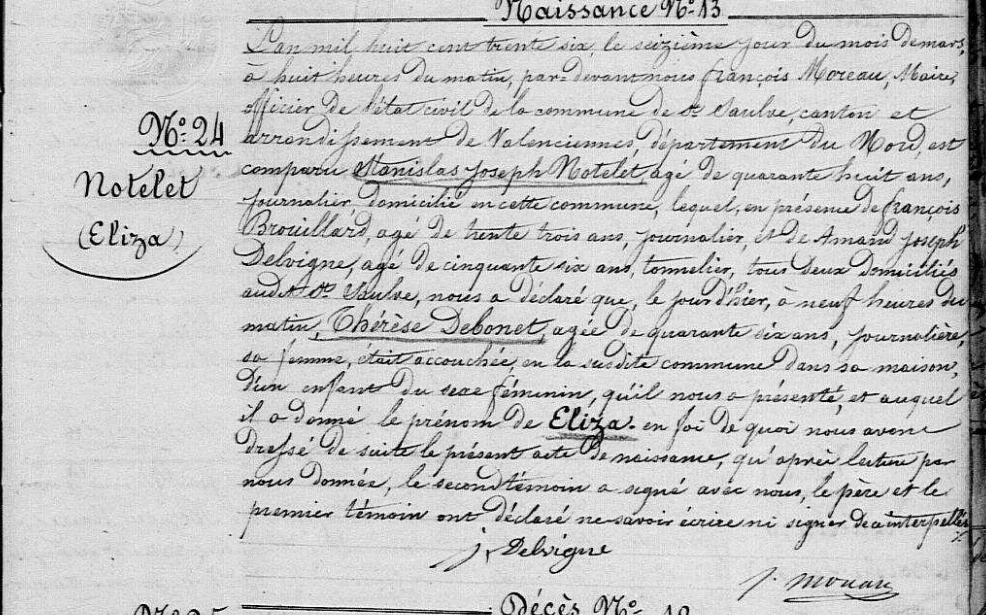 Naissance N° 13
N° 24
Notelet
(Eliza)
L'an mil huit cent trente six, le seizième jour du mois de mars,
à huit heures du matin, par-devant nous françois Moreau, Maire,
officier de l'état civil de la commune de St Saulve, canton et
arrondissement de Valenciennes, département du Nord, est
comparu Stanislas Joseph Notelet, agé de quarante huit ans,
journalier domicilié en cette commune, lequel, en présence de françois
Brouillard, agé de trente trois ans, journalier, et de Amand Joseph
Delvigne, agé de cinquante six ans, tonnelier, tous deux domiciliés
audit St Saulve, nous a déclaré que, le jour d'hier, à neuf heures du
matin, Thérèse Debonet, agée de quarante six ans, journalière,
sa femme, était accouchée, en la susdite commune dans sa maison,
d'un enfant du sexe féminin, qu'il nous a présenté, et auquel
il a donné le prénom de Eliza. en foi de quoi nous avons
dressé de suite le présent acte de naissance, qu'après lecture par
nous donnée, le second témoin a signé avec nous, le père et le
premier témoin ont déclaré ne savoir écrire ni signer de ce interpellés
j. Delvigne
f. moreau
Décès N°